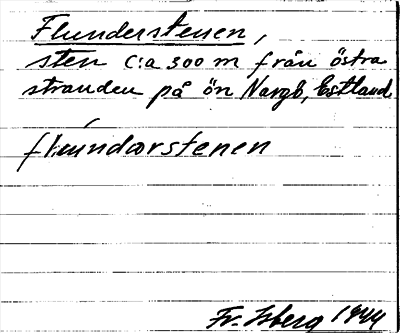 Flunderstenen,
sten c:a 300 m från östra
stranden på ön Nargö, Estland
flúndarstenen
Fr. Isberg 1944